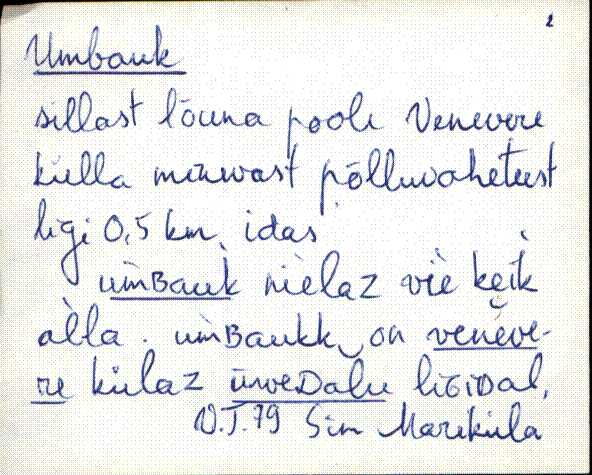 2
Umbauk
sillast lõuna pool Venevere
külla minevast põlluvaheteest
ligi 0,5 km idas
ùmʙauk nièlaz viè kẹik
àlla. ùmʙaukk on venève-
re külaz ürveᴅalu liɢiᴅal,
V.J. 79 Sim Mareküla